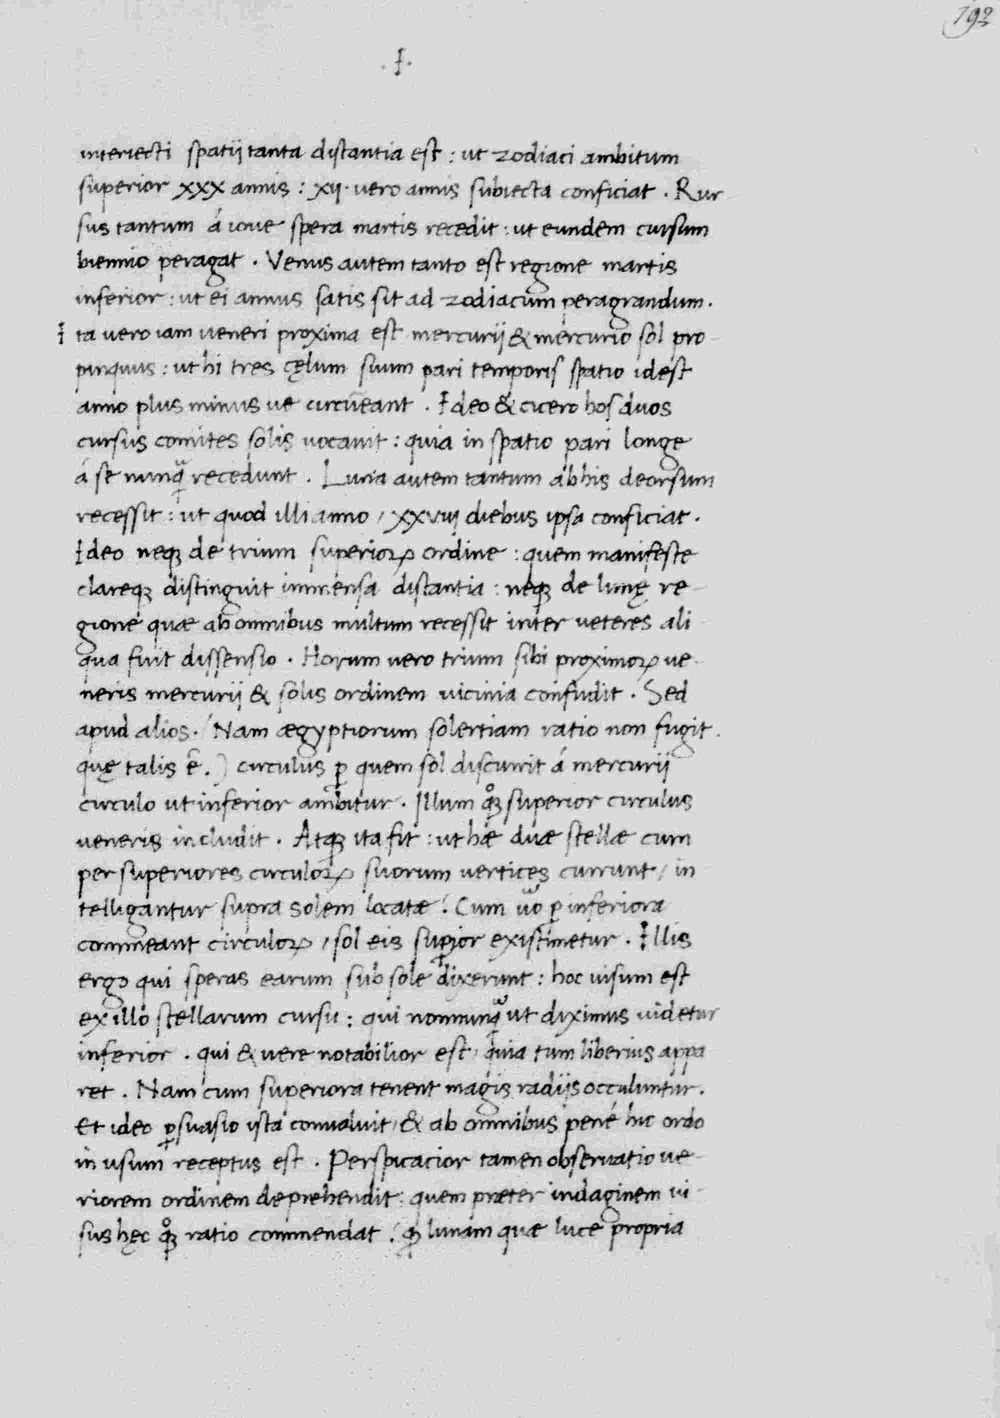 192
·I·
interiecti spatij tanta distantia est : ut zodiaci ambitum
superior xxx annis : xij · vero annis subiecta conficiat . Rur
sus tantum á ioue spera martis recedit : ut eundem cursum
biennio peragat . Venus autem tanto est regione martis
inferior : ut ei annus satis sit ad zodiacum peragrandum .
I ta vero iam veneri proxima est mercurij & mercurio sol pro-
pinquus : ut hi tres cęlum suum pari temporis spatio idest
anno plus minus ue circūeant . Ideo & cicero hos duos
cursus comites solis vocauit : quia in spatio pari longe
á se nunqᷓ recedunt . Luna autem tantum ab his deorsum
recessit : ut quod illi anno / xxviij diebus ipsa conficiat .
Ideo neqꝫ de trium superioꝝ ordine : quem manifeste
clareqꝫ distinguit immensa distantia : neqꝫ de lunę re-
gione quæ ab omnibus multum recessit inter veteres ali-
qua fuit dissensio . Horum vero trium sibi proximoꝝ ve-
neris mercurij & solis ordinem vicinia confudit . Sed
apud alios . (Nam ægyptiorum solertiam ratio non fugit .
quę talis ē . ) circulus ꝑ quem sol discurrit á mercurij
circulo ut inferior ambitur . Illum qͦꝫ superior circulus
veneris includit . Atqꝫ ita fit : ut hæ duæ stellæ cum
per superiores circuloꝝ suorum vertices currunt / in
telligantur supra solem locatæ : Cum uͦo ꝑ inferiora
commeant circuloꝝ / sol eis suꝑior existimetur . Illis
ergo qui speras earum sub sole dixerunt : hoc uisum est
ex illo stellarum cursu : qui nonnunqᷓ ut diximus uidetur
inferior . qui & vere notabilior est / quia tum liberius appa
ret . Nam cum superiora tenent magis radijs occuluntur .
Et ideo ꝑsuasio ista conualuit / & ab omnibus pené hic ordo
in usum receptus est . Perspicacior tamen obseruatio ue-
riorem ordinem deprehendit : quem præter indaginem ui-
sus hęc qͦꝫ ratio commendat : qꝫ lunam quæ luce propria